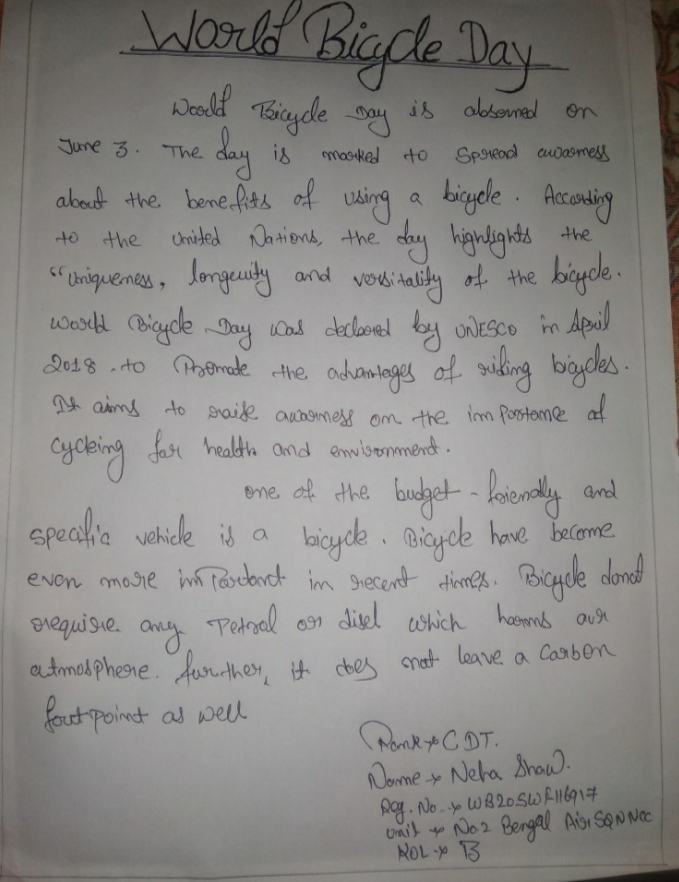 World Bicycle Day
World Bicycle Day is observed on
June 3. The day is marked to spread awarness
about the benefits of using a bicycle. According
to the united Nations, the day highlights the
"uniqueness, longevity and versitality of the bicycle.
World Bicycle Day was declared by UNESCO in April
2018. to Promote the advantages of riding bicycles.
It aims to raise awarness on the importance of
cycking for health and environment.
one of the budget-friendly and
specific vehicle is a bicycle. Bicycle have become
even more important in recent times. Bicycle donot
require any Petrol or disel which harms our
atmosphere. further, it does not leave a carbon
foutpoint as well
Rank → CDT.
Name → Neha Shaw.
Reg. No. → WB20SWF116917
Unit → No 2 Bengal Air SQN NCC
ROL → B